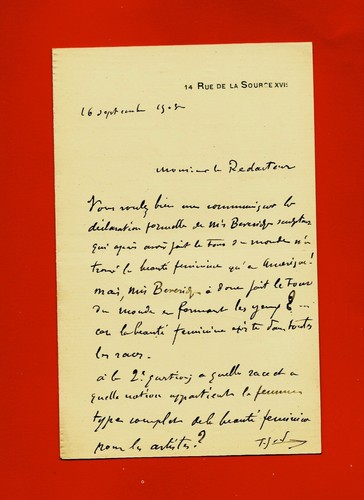 14 RUE DE LA SOURCE XVIE
16 septembre
Monsieur le Redacteur
Vous voulez bien me communiquer la
déclaration formelle de Mis sculpteur
qui après avoir fait le tour du monde n'a
trouvé la beauté feminine qu'en Amerique!
mais, Mis a donc fait le tour
du monde en fermant les yeux? ...
car la beauté feminine existe dans toutes
les races.
à la 2e question, a quelle race et a
quelle nation appartient la femme
type complet de la beauté feminine
pour les artistes?